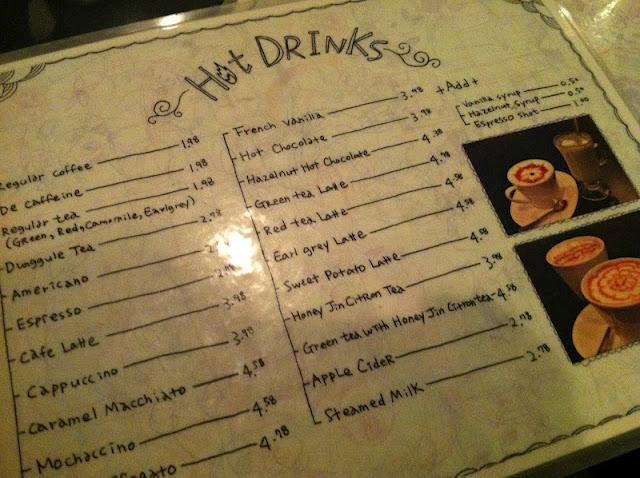 Hot DRINKS
Regular coffee 1.98
De caffeine 1.98
Regular tea 1.98
(Green, Red, Camomile, Earlgrey)
Dunggule Tea 2.78
Americano
Espresso
Cafe Latte 3.98
Cappuccino 3.98
Caramel Macchiato 4.58
Mochaccino 4.58
4.78
French Vanilla 3.98
Hot Chocolate 3.98
Hazelnut Hot Chocolate 4.38
Green tea Latte
Red tea Latte 4.58
Earl grey Latte 4.58
Sweet Potato Latte 4.58
Honey Jin Citron Tea 3.98
Green tea with Honey Jin Citron tea 4.58
Apple Cider 2.78
Steamed Milk 2.78
+Add+
Vanilla syrup 0.50
Hazelnut syrup 0.50
Espresso shot 1.00